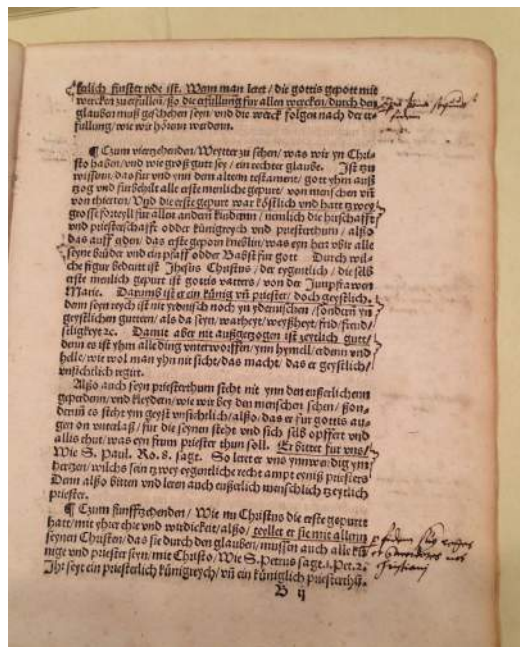 ferlich finster rede ist. Wenn man leret / die gottis gepott mit
wercken zu erfullen / ßo die erfullung fur allen wercken / durch den
glauben muß geschehen seyn / vnd die werck folgen nach der er-
fullung / wie wir hören werdenn.
¶ Czum viertzehenden / Weytter zu sehen / was wir yn Chri-
sto haben / vnd wie groß gutt sey / ein rechter glaube. Ist tzu
wissenn / das fur vnd ynn dem altem testament / gott yhm auß
tzog vnd furbehilt alle erste menliche gepurt / von menschen vn̄
von thierten / Vnd die erste gepurt war köstlich vnd hatt tzwey
grosse forteyll fur allen andern kindernn / nemlich die hirschafft
vnd priesterschafft odder künigreych vnd priesterthum / alßo
das auff erden / das erste geporn kneblin / was eyn herr vbir alle
seyne brüder vnd ein pfaff odder Babst fur gott Durch wil-
che figur bedeutt ist Jhesus Christus / der eygentlich / die selb
erste menlich gepurt ist gottis vatters / von der Junpfrawen
Marie. Darumb ist er ein künig vn̄ priester / doch geystlich.
denn seyn reych ist nit yrdenisch noch yn yrdenischen / sondern yn
geystlichen guttern / als da seyn / warheyt / weyßheyt / frid / freud /
seligkeyt ꝛc. Damit aber nit außgetzogen ist zeytlich gutt /
denn es ist yhm alle ding vnterworffen / ynn hymell / erdenn vnd
helle / wie wol man yhn nit sicht / das macht / das er geystlich /
vnsichtlich regirt.
Alßo auch seyn priesterthum steht nit ynn den eußerlichenn
geperdenn / vnd kleydern / wie wir bey den menschen sehen / ßon-
dernn es steht ym geyst vnsichtlich / alßo / das er fur gottis au-
gen on vnterlaß / fur die seynen steht vnd sich selb opffert vnd
allis thut / was eyn frum priester thun soll. Er bittet fur vns /
Wie S. Paul. Ro. 8. sagt. So leret er vns ynnwendig ym
hertzen / wilchs sein tzwey eygentliche recht ampt eyniß priesters
Denn alßo bitten vnd leren auch eußerlich menschlich tzeytlich
priester.
¶ Czum funfftzehenden / Wie nu Christus die erste gepurtt
hatt / mit yhrer ehre vnd wirdickeit / alßo / teyllet er sie mit allenn
seynen Christen / das sie durch den glauben / mussen auch alle kü-
nige vnd priester seyn / mit Christo / Wie S. Petrus sagt. 1. Pet. 2.
Ihr seyt ein priesterlich künigreych / vn̄ ein küniglich priesterthū.
B ij